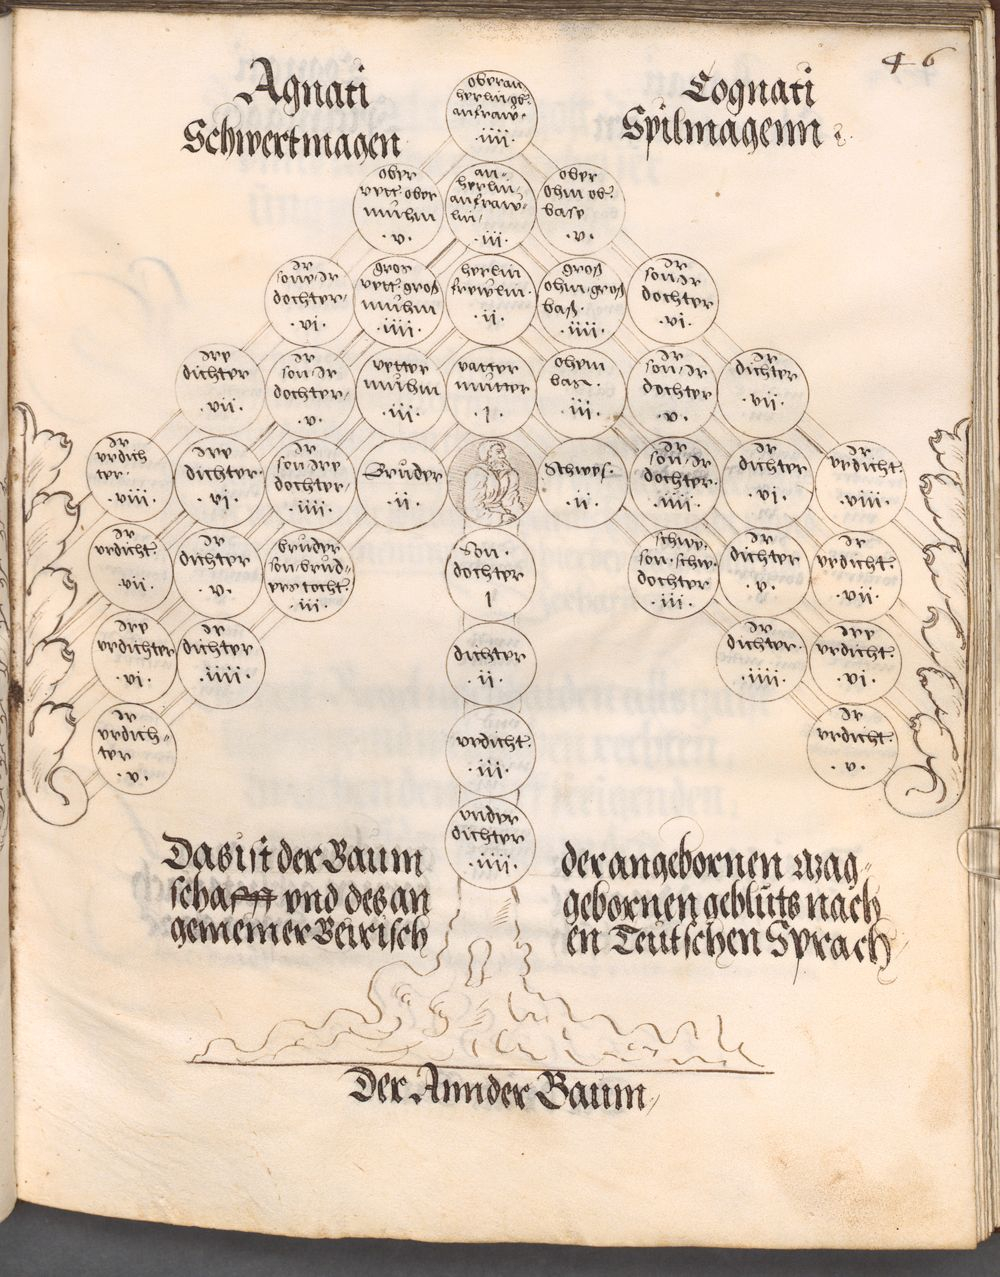 46
Agnati
Schwertmagen
Cognati
Spilmagenn
oberan
herlin ob.
anfraw.
.iiii.
ober
vett ober
muhm
.v.
an-
herlin
anfraw-
lin
.iii.
ober
ohm ob.
base
.v.
dr
sone dr
dochter
.vi.
gros
vett groß
muhm
.iiii.
herlin
frewlin.
.ii.
groß
ohm groß
baß.
.iiii.
dr
son dr
dochter
.vi.
dre
dichter
.vii.
dr
son dr
dochter
.v.
vetter
muhm
.iii.
vatter
mutter
.i.
ohem
bas.
.iii.
dr
son dr
dochter
.v.
dr
dichter
.vii.
dr
vrdich
ter.
.viii.
dre
dichter.
.vi.
dr
son dre
dochter
.iiii.
Bruder
.ii.
Schwes.
.ii.
dr
son dr
dochter.
.iiii.
dr
dichter
.vi.
dr
vrdicht.
.viii.
dr
vrdicht.
.vii.
dr
dichter
.v.
bruder
son brud-
ers tocht.
.iii.
son.
dochter
i
schwe.
son schw.
dochter
.iii.
dr
dichter
.v.
dr
vrdicht.
.vii.
dre
vrdichter
.vi.
dr
dichter
.iiii.
dichter
.ii.
dr
dichter.
.iiii.
dre
vrdicht.
.vi.
dr
vrdich-
ter
.v.
vrdicht.
.iii.
dr
vrdicht.
.v.
vnder
dichter
.iiii.
Das ist der Baum der angebornen Mag-
schafft vnd des an gebornen gebluts nach
gemeiner Beirisch en Teutschen Sprach
Der Annder Baum